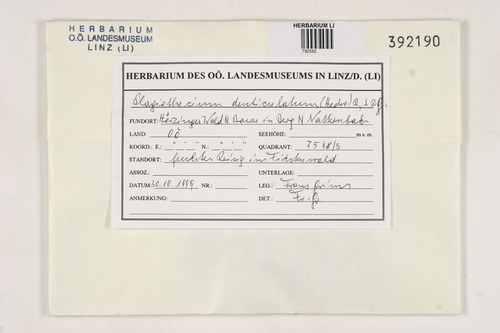 HERBARIUM
O.Ö. LANDESMUSEUM
LINZ (LI)
HERBARIUM LI
392190
HERBARIUM DES OÖ. LANDESMUSEUMS IN LINZ/D. (LI)
Plagiothecium denticulatum (Hedw.)
FUNDORT: Wald N Bauer im Berg N Natternbach
LAND: OÖ SEEHÖHE: m s. m.
KOORD.: E: ° ' " N: ° ' " QUADRANT: 7548/3
STANDORT: feuchter Reisig im Fichtenwald
ASSOZ: UNTERLAGE:
DATUM: 30.10.1999 NR.: LEG.: Franz Grims
ANMERKUNG: DET.: Fr. G